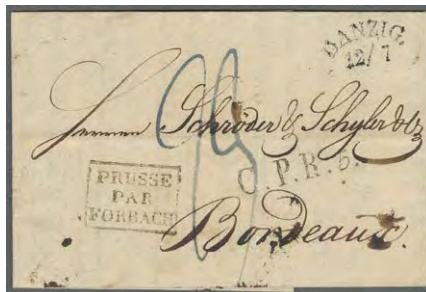 DANZIG.
12/7
Herren Schröder & Schyler & Co
C.P.R.5.
PRUSSE
PAR
FORBACH
Bordeaux.